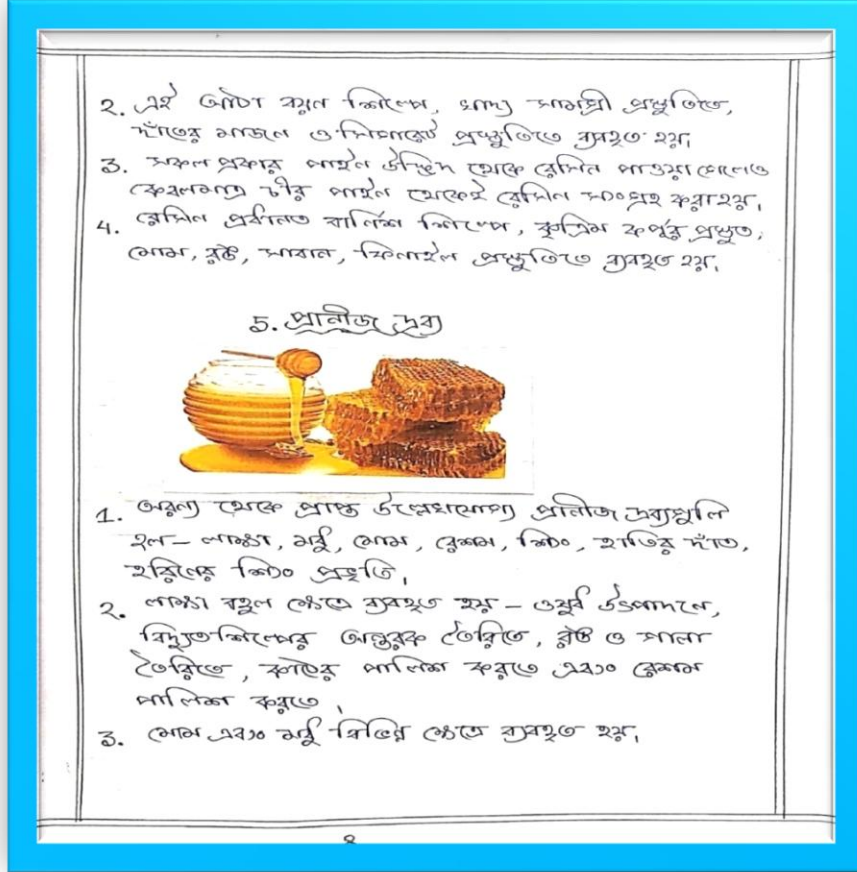 2. এই আঠা বয়ন শিল্পে, খাদ্য সামগ্রী প্রস্তুতিতে,
দাঁতের মাজন ও সিগারেট প্রস্তুতিতে ব্যবহৃত হয়।
3. সকল প্রকার পাইন উদ্ভিদ থেকে রেসিন পাওয়া গেলেও
কেবলমাত্র চীর পাইন থেকেই রেসিন সংগ্রহ করা হয়।
4. রেসিন প্রধানত বার্নিশ শিল্পে, কৃত্রিম কর্পূর প্রস্তুত,
মোম, রঙ, সাবান, ফিনাইল প্রস্তুতিতে ব্যবহৃত হয়।
5. প্রানীজ দ্রব্য
1. অরন্য থেকে প্রাপ্ত উল্লেখযোগ্য প্রানীজ দ্রব্যগুলি
হল– লাক্ষা, মধু, মোম, রেশম, শিং, হাতির দাঁত,
হরিনের শিং প্রভৃতি।
2. লাক্ষা বহুল ক্ষেত্রে ব্যবহৃত হয় – ওষুধ উৎপাদনে,
বিদ্যুতশিল্পের অন্তরক তৈরিতে, রঙ ও গালা
তৈরিতে, কাঠের পালিশ করতে এবং রেশম
পালিশ করতে।
3. মোম এবং মধু বিভিন্ন ক্ষেত্রে ব্যবহৃত হয়।
8